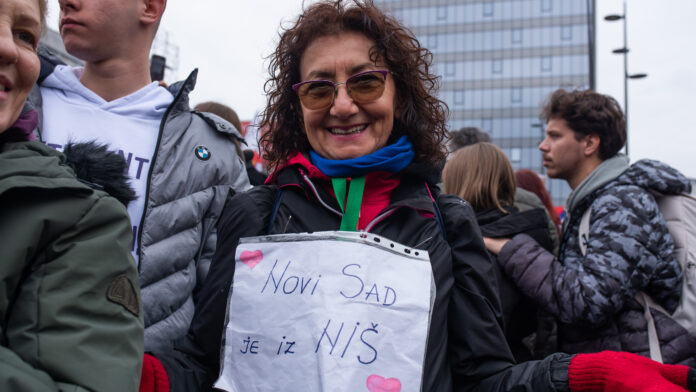 BMW
Novi Sad
je iz Niš